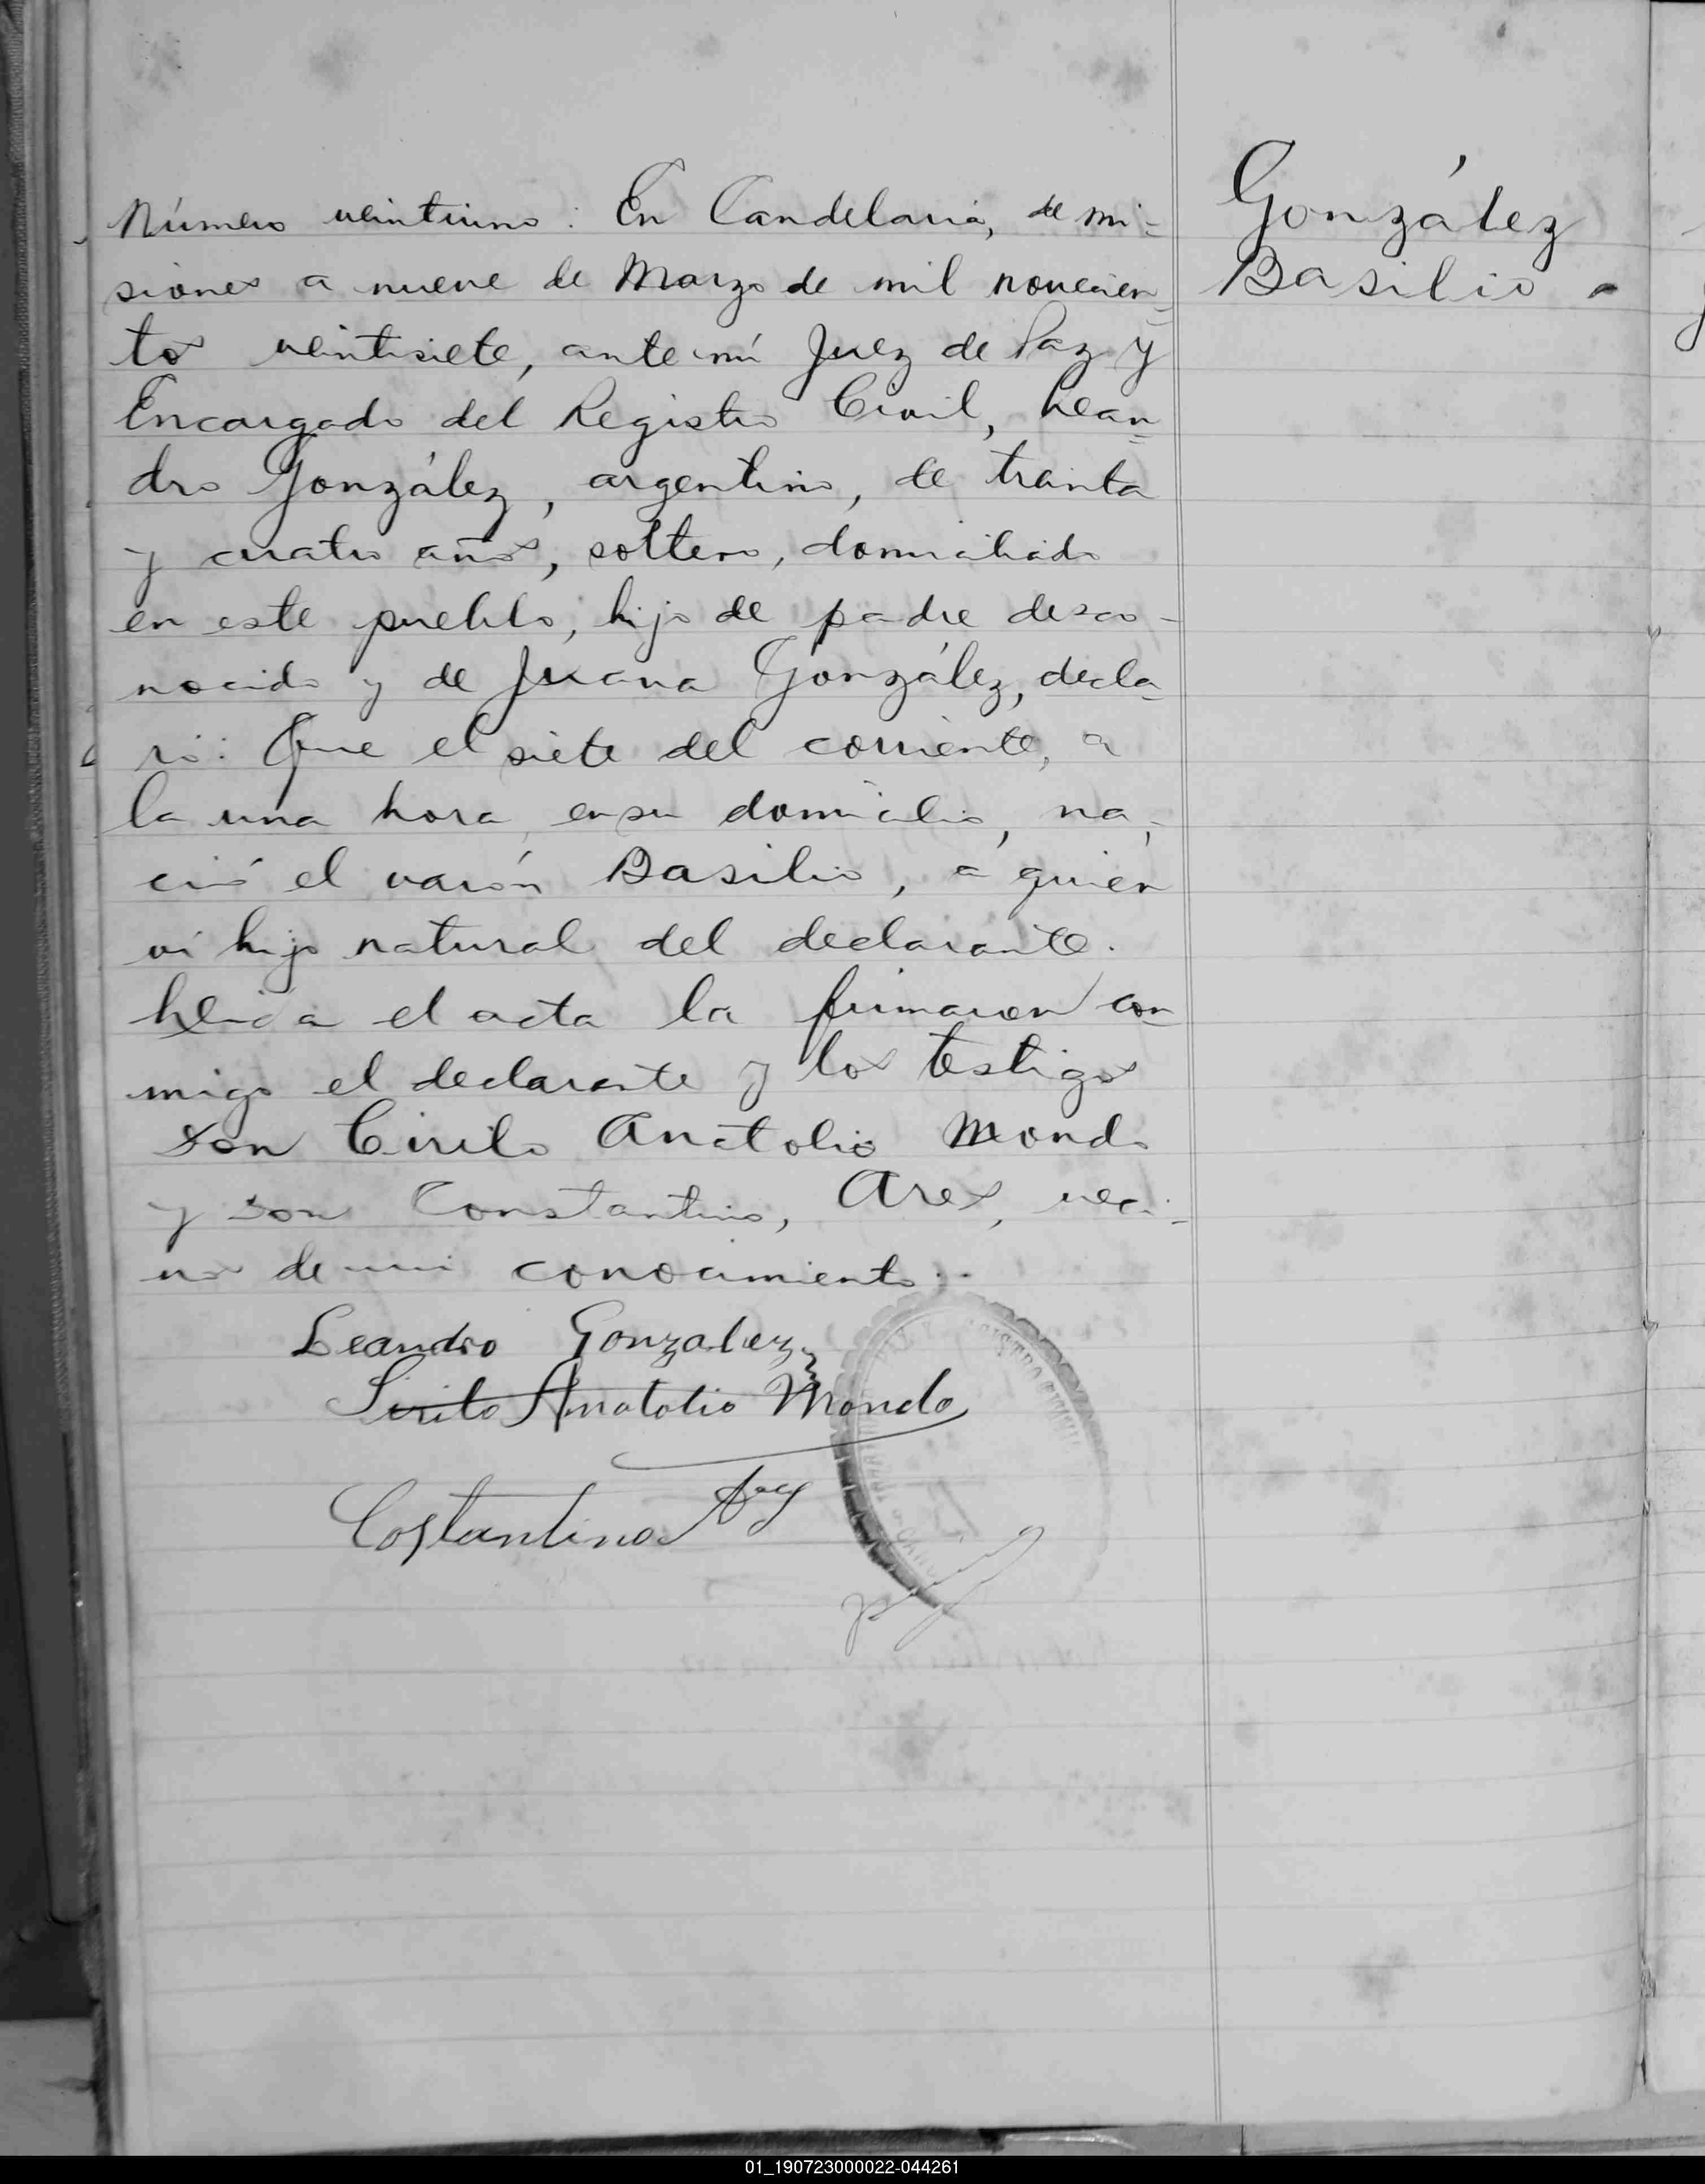 González
Basilio -
Número veintiuno: En Candelaria, de Mi-
siones a nueve de Marzo de mil novecien-
tos veintisiete, ante mí Juez de Paz y
Encargado del Registro Civil, Lean-
dro González, argentino, de treinta
y cuatro años, soltero, domiciliado
en este pueblo, hijo de padre desco-
nocido y de Juana González, decla-
ró: Que el siete del corriente, a
la una hora, en su domicilio, na-
ció el varón Basilio, a quien
vi hijo natural del declarante.
Leida el acta la firmaron con-
migo el declarante y los testigos
don Cirilo Anatolio Mondo
y don Constantino, Ares, veci-
nos de mi conocimiento.-
Leandro Gonzalez
Sirilo Anatolio Mondo
Costantino
01_190723000022-044261